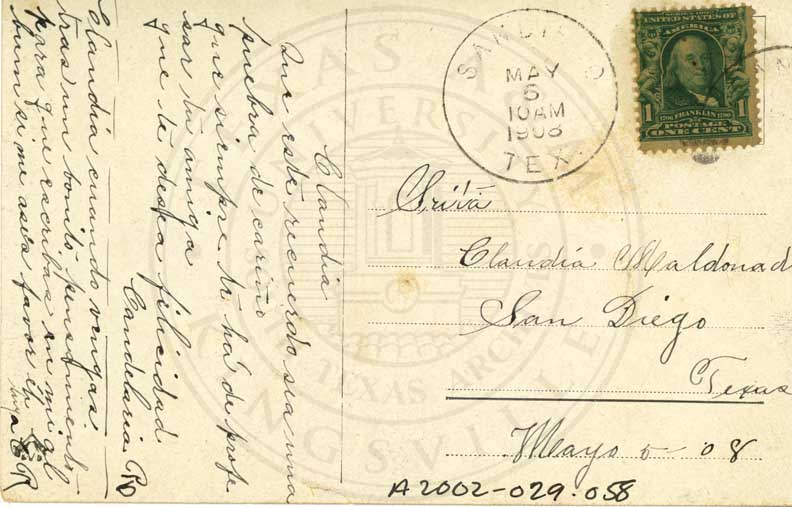 Claudia
Que este recuerdo sea una
pruebra de cariño
que siempre te há de profe
sar tu amiga
que te desea felicidad
Candelaria
Claudia cuando vengas
tras un bonito pensamiento
para que escribas en mi al
bum si me aseis favor
SANDIA
MAY
5
10AM
1908
TEX.
SERIES 1902
UNITED STATES OF
AMERICA
1 1706 FRANKLIN 1790 1
POSTAGE
ONE CENT
Srita
Claudia Maldonad
San Diego
Texas
Mayo 5- 08
A2002-029.058
TEXAS A&M UNIVERSITY
KINGSVILLE
SOUTH TEXAS ARCHIVES